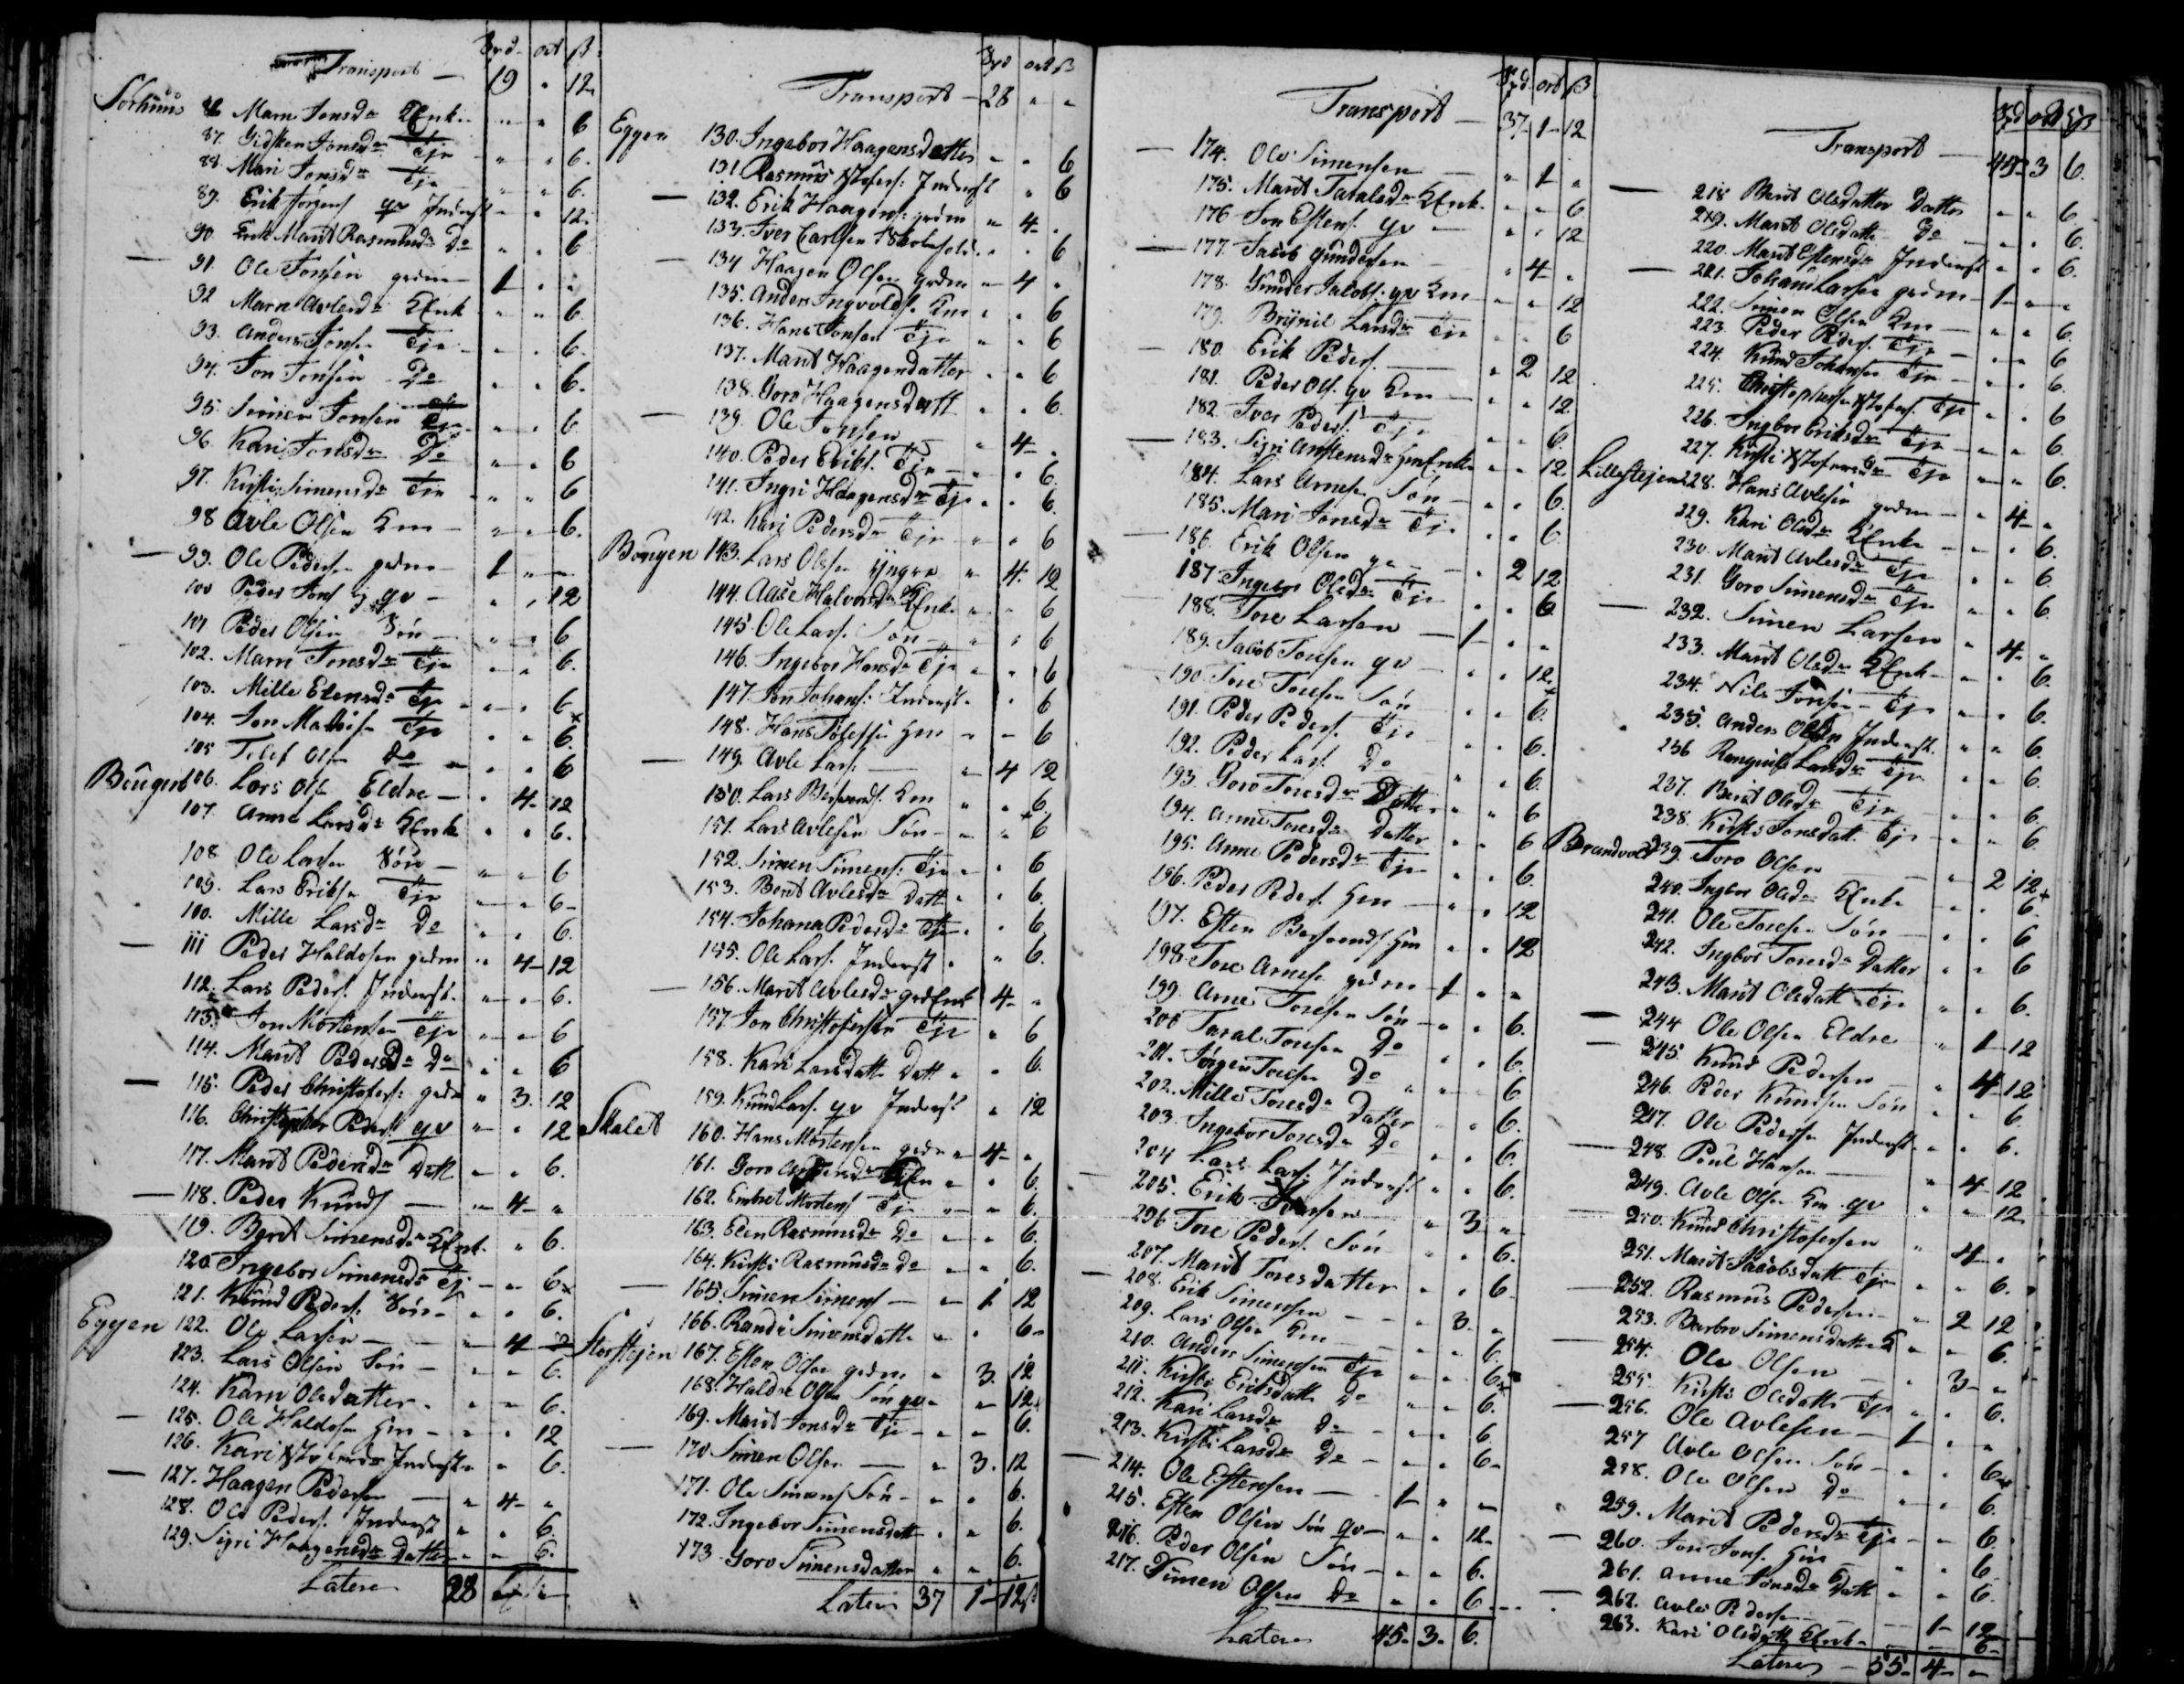 Rd. ort ß
Transport — 19 " 12
Sorhuus 86 Marn Jonsd. KEnk. " " 6
87. Gidsken Jonsd. Tje " " 6.
88. Mari Jonsd. Tje " " 6.
89. Erik Jörgens. qv Inderst " " 12.
90. Marit Rasmusd. Do " " 6
91. Ole Jonsen gdm 1 " "
92 Marn Avlesd. KEnk " " 6.
93. Anders Jonsen Tje " " 6.
94. Jon Jonsen Do " " 6.
95. Simen Jonsen Tje " " 6
96. Kari Jonsd. Do " " 6
97. Kirsti Simensd. Tje " " 6
98 Avle Olsen Km " " 6.
99. Ole Pedersen gdm 1 " "
100 Peder Jons. qv " " 12
101 Peder Olsen Søn " " 6
102. Marn Jonsd. Tje " " 6.
103. Mille Estensd. Tje " " 6
104. Jon Mathis. Tje " " 6.
105 Tolef Ols. Do " " 6
106. Lars Ols. Eldre " 4 12
107. Anne Larsd. KEnk " " 6.
108 Ole Larsen Søn " " 6
109. Lars Eriks. Tje " " 6
100. Mille Larsd. Do " " 6.
111 Peder Haldosen gdm " 4 12
112. Lars Peders. Inderst. " " 6.
113. Jon Mortensen Tje " " 6
114. Marit Pedersd. Do " " 6
115. Peder Christofers: gdm " 3. 12
116. Christopher Peders. qv " " 12
117. Marit Pedersd. Datt " " 6.
118. Peder Knuds. " 4 "
119. Berit Simensd. KEnk. " " 6.
120 Ingebor Simensd. Tje " " 6
121. Knud Peders. Søn " " 6.
Eggen 122. Ole Larsen " 4
123. Lars Olsen Søn " " 6.
124. Karn Olsdatter " " 6.
125. Ole Haldosen Hm " " 12
126. Kari Xstofersd. Inderst " " 6.
127. Haagen Pedersen " 4 "
128. Ole Peders. Inderst " " 6.
129. Sigri Haagensd. Datter " " 6.
Latere 28 " "
Rd ort ß
Transport — 28 " "
Eggen 130. Ingebor Haagensdatter " " 6
131. Rasmus Xstofers: Inderst " " 6
132. Erik Haagens: gdm " 4 "
133. Iver Carlsen " " 6
134 Haagen Olsen gdm " 4 "
135. Anders Ingvolds. Km " " 6
136. Hans Jonsen Tje " " 6
137. Marit Haagensdatter " " 6
138. Goro Haagensdatt " " 6.
139. Ole Jonsen " 4 "
140. Peder Eriks. Tje " " 6.
141. Ingri Haagensd. Tje " " 6.
142. Kari Pedersd. Tje " " 6
143. Lars Olsen Yngre " 4 12
144. Aase Halvorsd. KEnk. " " 6
145. Ole Lars. Søn " " 6
146. Ingebor Hansd. Tje " " 6
147. Jon Johans: Inderst " " 6
148. Hans Tolefsen Hm " " 6
149. Avle Lars: " 4 12
150. Lars Km " " 6.
151. Lars Avlesen Søn " " 6
152. Simen Simens: Tje " " 6
153. Berit Avlesd. Datt " " 6.
154. Johana Pedersd. Tje " " 6
155. Ole Lars. Inderst " " 6.
156. Marit Avlesd. gdEnk 4 "
157. Jon Christofersen Tje " 6
158. Kari Larsdatt. Datt " " 6.
159. Knud Lars. qv Inderst " 12
Skalet 160. Hans Mortensen gdm " 4 "
161. Goro KEn " " 6
162. Embret Mortens. Tje " " 6.
163. Elen Rasmusd. Do " " 6.
164. Kirsti Rasmusd. Do " " 6.
165. Simen Simens. " 1 12
166. Randi Simensdatt. " " 6
Storstejen 167. Esten Olsen gdm " 3. 12
168. Haldo Olsen Søn qv " " 12.
169. Marit Jonsd. Tje " " 6.
170. Simen Olsen " 3. 12
171. Ole Simens. Søn " " 6.
172. Ingebor Simensdatt " " 6.
173. Goro Simensdatter " " 6.
Latere 37 1 12 ß
Rd. ort ß.
Transport — 37 1 12
174. Ole Simensen " 1 "
175. Marit Taralsd. KEnk. " " 6
176. Jon Estens. qv " " 12
177. Jacob Gundersen " 4 "
178. Gunder Jacobs. qv Km " " 12
179. Brynil Larsd. Tje " " 6
180. Erik Peders. " 2 12
181. Peder Ols. qv Km " " 12
182. Iver Peders. Tje " " 6.
183. Sigri Arnstensd. HmEnke " " 12
184. Lars Arnesen Søn " " 6.
185. Mari Jonsd. Tje " " 6
186. Erik Olsen " 2 12
187. Ingebor Olsd. Tje " " 6
188. Tore Larsen 1 " "
189. Jacob Toresen qv " " 12
190. Tore Toresen Søn " " 6.
191. Peder Peders. Tje " " 6.
192. Peder Lars. Do " " 6.
193. Goro Toresd. Datter " " 6
194. Anne Toresd. Datter " " 6
195. Anne Pedersd. Tje " " 6.
196. Peder Peders. Hm " " 12
197. Esten Hm " " 12
198. Tore Arnesen gdm 1 " "
199. Arne Toresen Søn " " 6.
200 Taral Toresen Do " " 6.
201. Jörgen Toresen Do " " 6
202. Mille Toresd. Datter " " 6.
203. Ingebor Toresd. Do " " 6.
204 Lars Lars. Inderst " " 6.
205. Erik Iversen " 3 "
206 Tore Peders. Søn " " 6.
207. Marit Toresdatter " " 6
208. Erik Simensen " 3. "
209. Lars Olsen Km " " 6.
210. Anders Simensen Tje " " 6
211. Kirsti Eriksdatt. Do " " 6.
212. Kari Larsd. Do " " 6
213. Kirsti Larsd. Do " " 6
214. Ole Estensen 1 " "
215. Esten Olsen Søn qv " " 12
216. Peder Olsen Søn " " 6.
217. Simen Olsen Do " " 6.
Latere 45. 3. 6.
Rd ort ß
Transport — 45 3 6.
218 Berit Olsdatter Datter " " 6
219. Marit Olsdatt. Do " " 6.
220. Marit Estensd. Inderst " " 6.
221. Johan Larsen gdm 1 " "
222. Simen Olsen Km " " 6.
223. Peder Peders. Tje " " 6
224. Knud Johansen Tje " " 6.
225. Xstofers. Tje " " 6
226. Ingebor Eriksd. Tje " " 6.
227. Kirsti Xstofersd. Tje " " 6.
Lillestejen 228. Hans Avlesen gdm " 4 "
229. Kari Olsd. KEnke " " 6.
230. Marit Avlesd. Tje " " 6.
231. Goro Simensd. Tje " " 6.
232. Simen Larsen " 4 "
233. Marit Olsd. KEnk " " 6.
234. Nils Jonsen Tje " " 6.
235. Anders Olsen Inderst " " 6.
236 Larsd. Tje " " 6.
237. Berit Olsd. Tje " " 6.
238. Kirsti Jonsdatt. Tje " " 6
Brandvold 239. Tore Olsen " 2 12
240. Ingebor Olsd. KEnke " " 6.
241. Ole Toresen Søn " " 6
242. Ingebor Toresd. Datter " " 6
243. Marit Olsdatt Tje " " 6.
244 Ole Olsen Eldre " 1 12
245. Knud Pedersen " 4 12
246. Peder Knudsen Søn " " 6.
247. Ole Pedersen Inderst " " 6.
248. Poul Hansen " 4 12
249. Avle Olsen Km qv " " 12
250. Knud Christofersen " 4 "
251. Marit Jacobsdatt Tje " " 6.
252. Rasmus Pedersen " 2 12
253. Barbro Simensdatter K " " 6.
254. Ole Olsen " 3 "
255. Kirsti Olsdatt Tje " " 6.
256. Ole Avlesen 1 " "
257 Avle Olsen Søn " " 6
258. Ole Olsen Do " " 6.
259. Marit Pedersd. Tje " " 6.
260. Jon Jons. Hm " " 6
261. Anne Jonsd. Datt " " 6.
262. Avle Pedersen 1 12
263. Kari Olsdatt KEnk " " 6
Latere 55 4 "